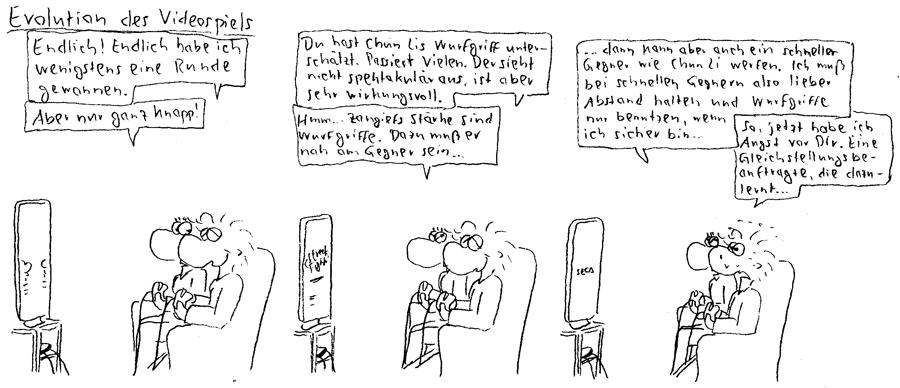 Evolution des Videospiels
Endlich! Endlich habe ich
wenigstens eine Runde
gewonnen.
Aber nur ganz knapp!
Du hast Chun Lis Wurfgriff unter-
schätzt. Passiert Vielen. Der sieht
nicht spektakulär aus, ist aber
sehr wirkungsvoll.
Hmm... Zangiefs Stärke sind
Wurfgriffe. Dazu muß er
nah am Gegner sein...
... dann kann aber auch ein schneller
Gegner wie Chun Li werfen. Ich muß
bei schnellen Gegnern also lieber
Abstand halten und Wurfgriffe
nur benutzen, wenn
ich sicher bin...
So, jetzt habe ich
Angst vor Dir. Eine
Gleichstellungsbe-
auftragte, die dazu-
lernt...
Street
Fight
SEGA